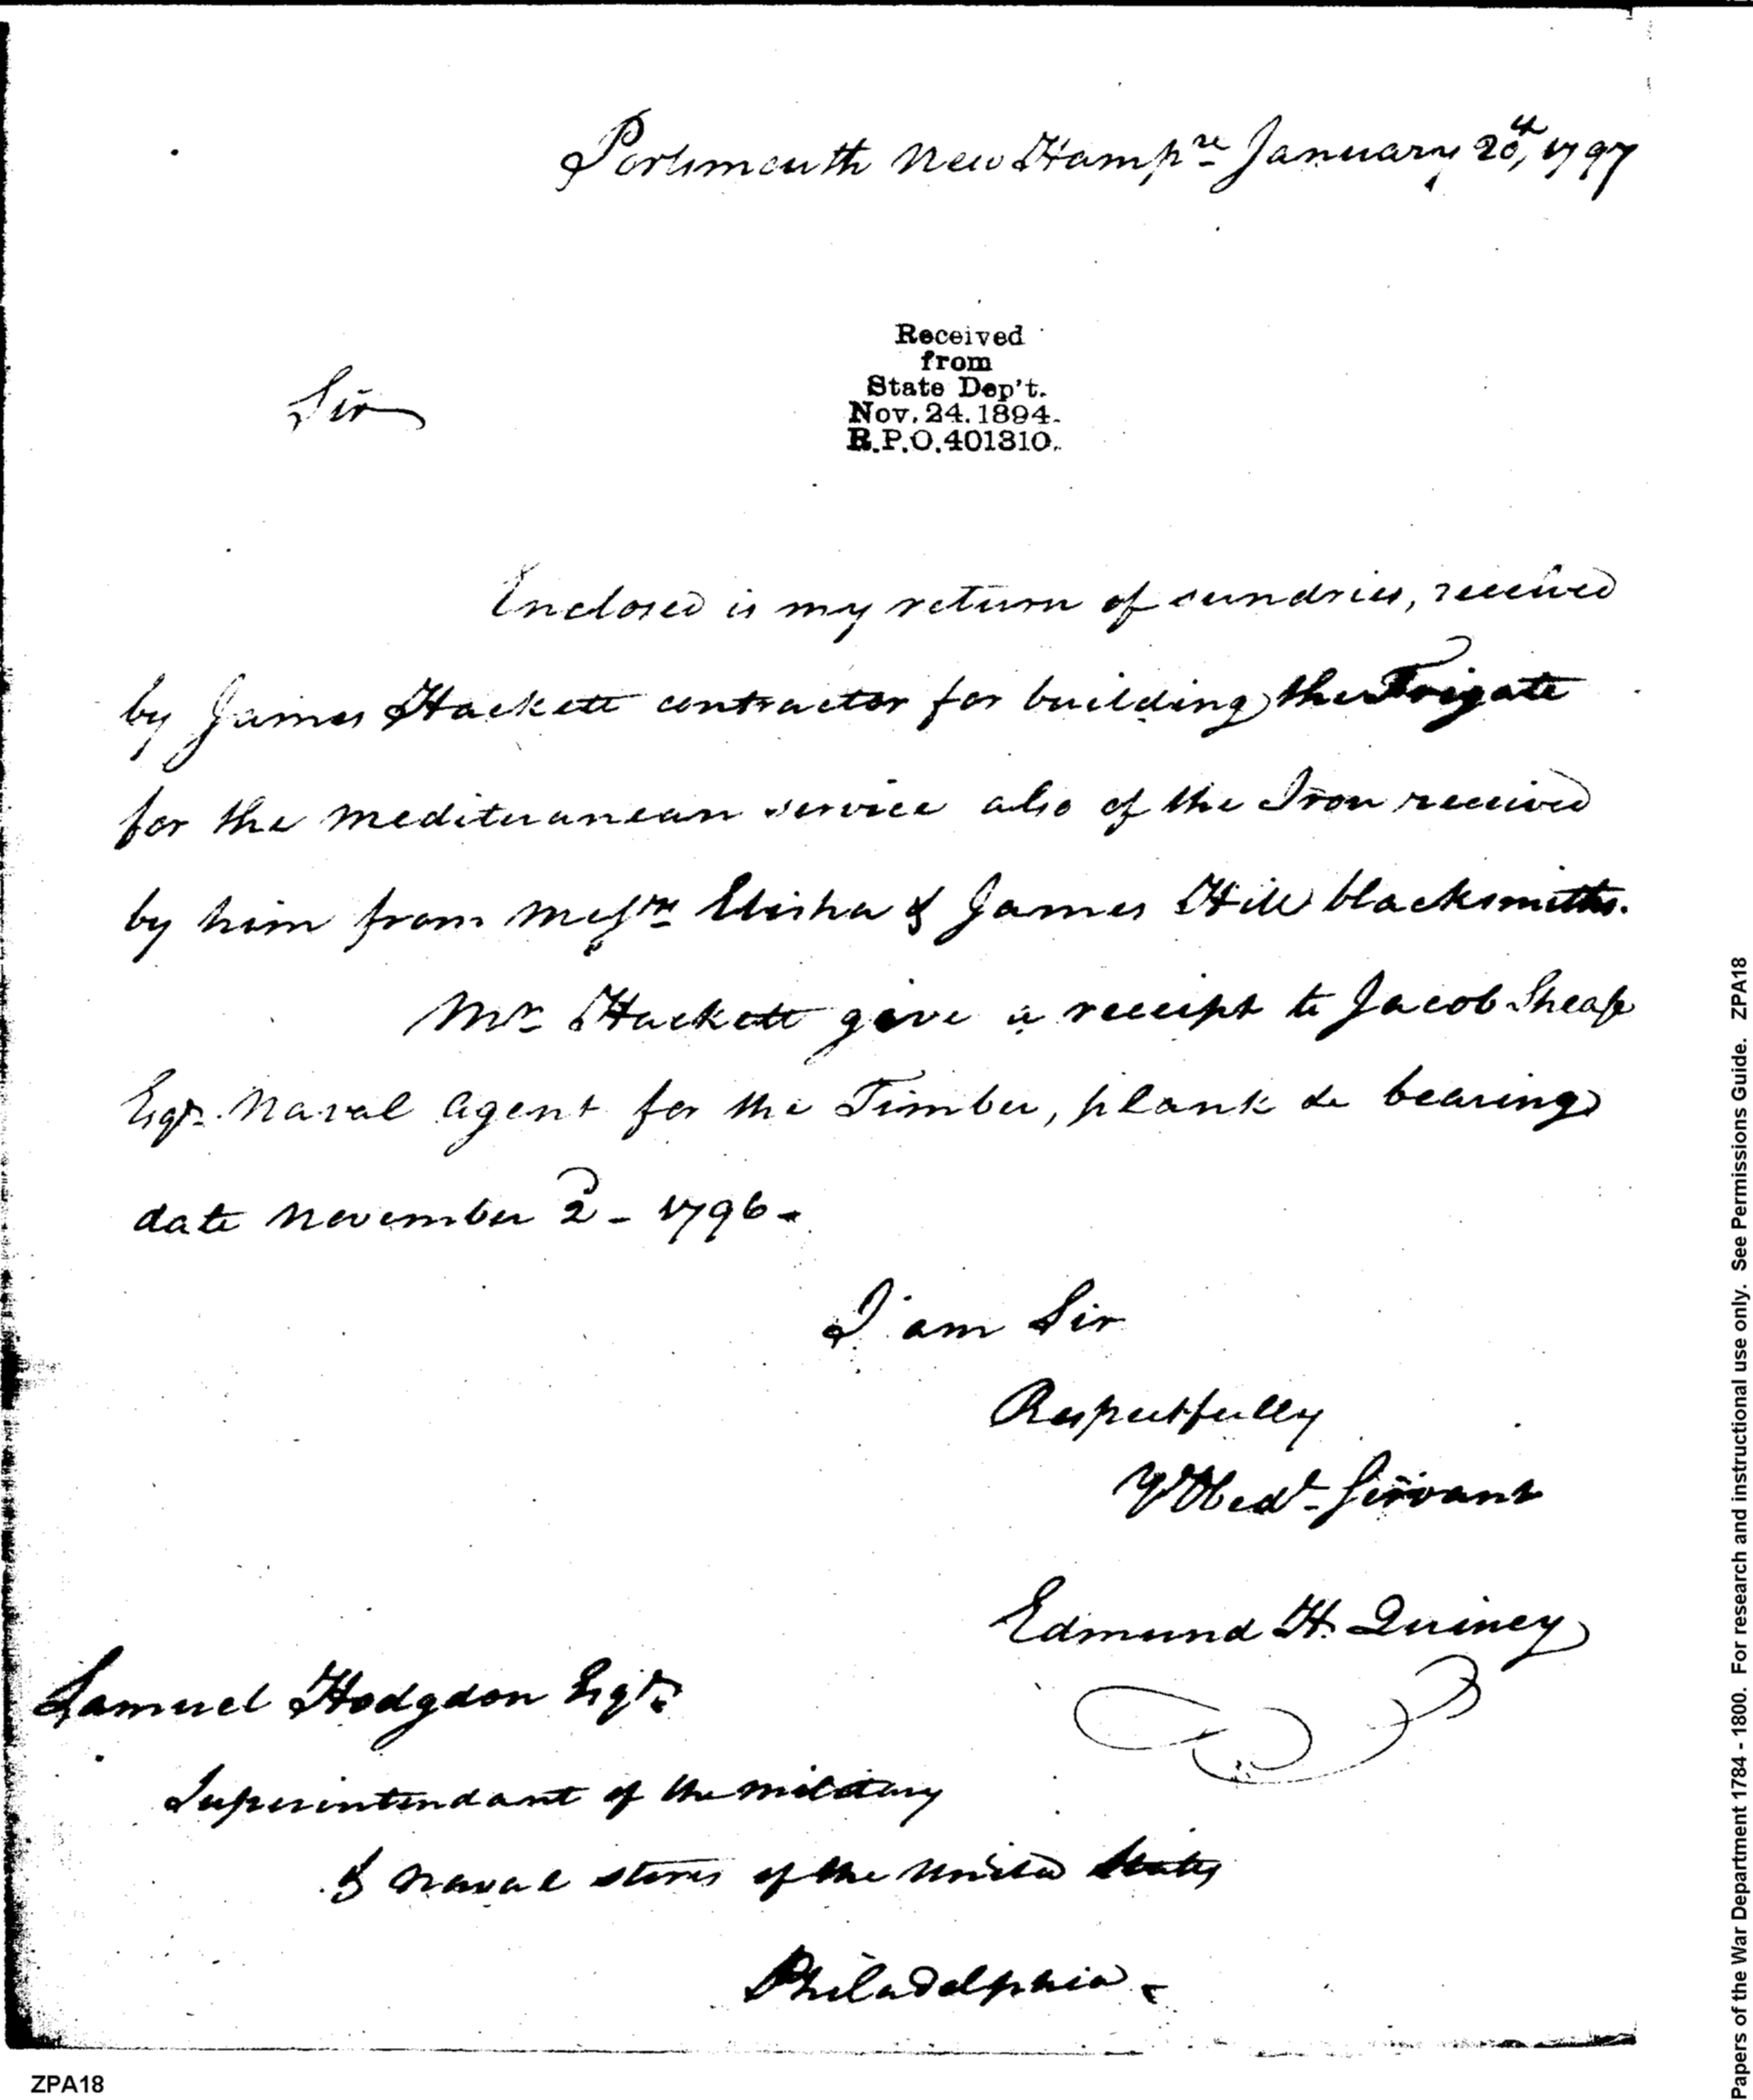 Portsmouth New Hampre January 20th, 1797
Received
from
State Dep't.
Nov. 24. 1894.
R.P.O. 401310.
Sir
Enclosed is my return of sundries, received
by James Hackett contractor for building the Frigate
for the mediteranean service also of the Iron received
by him from Messrs Elisha & James Hill blacksmiths.
Mr Hackett give a receipt to Jacob Sheafe
Esqr. Naval Agent for the Timber, plank &c bearing
date November 2d - 1796 -
I am Sir
Respectfully
Yr Obedt Servant
Edmund H. Quincy
Samuel Hodgdon Esqr.
Superintendant of the military
& Naval stores of the United States
Philadelphia -
ZPA18
Papers of the War Department 1784 - 1800. For research and instructional use only. See Permissions Guide. ZPA18